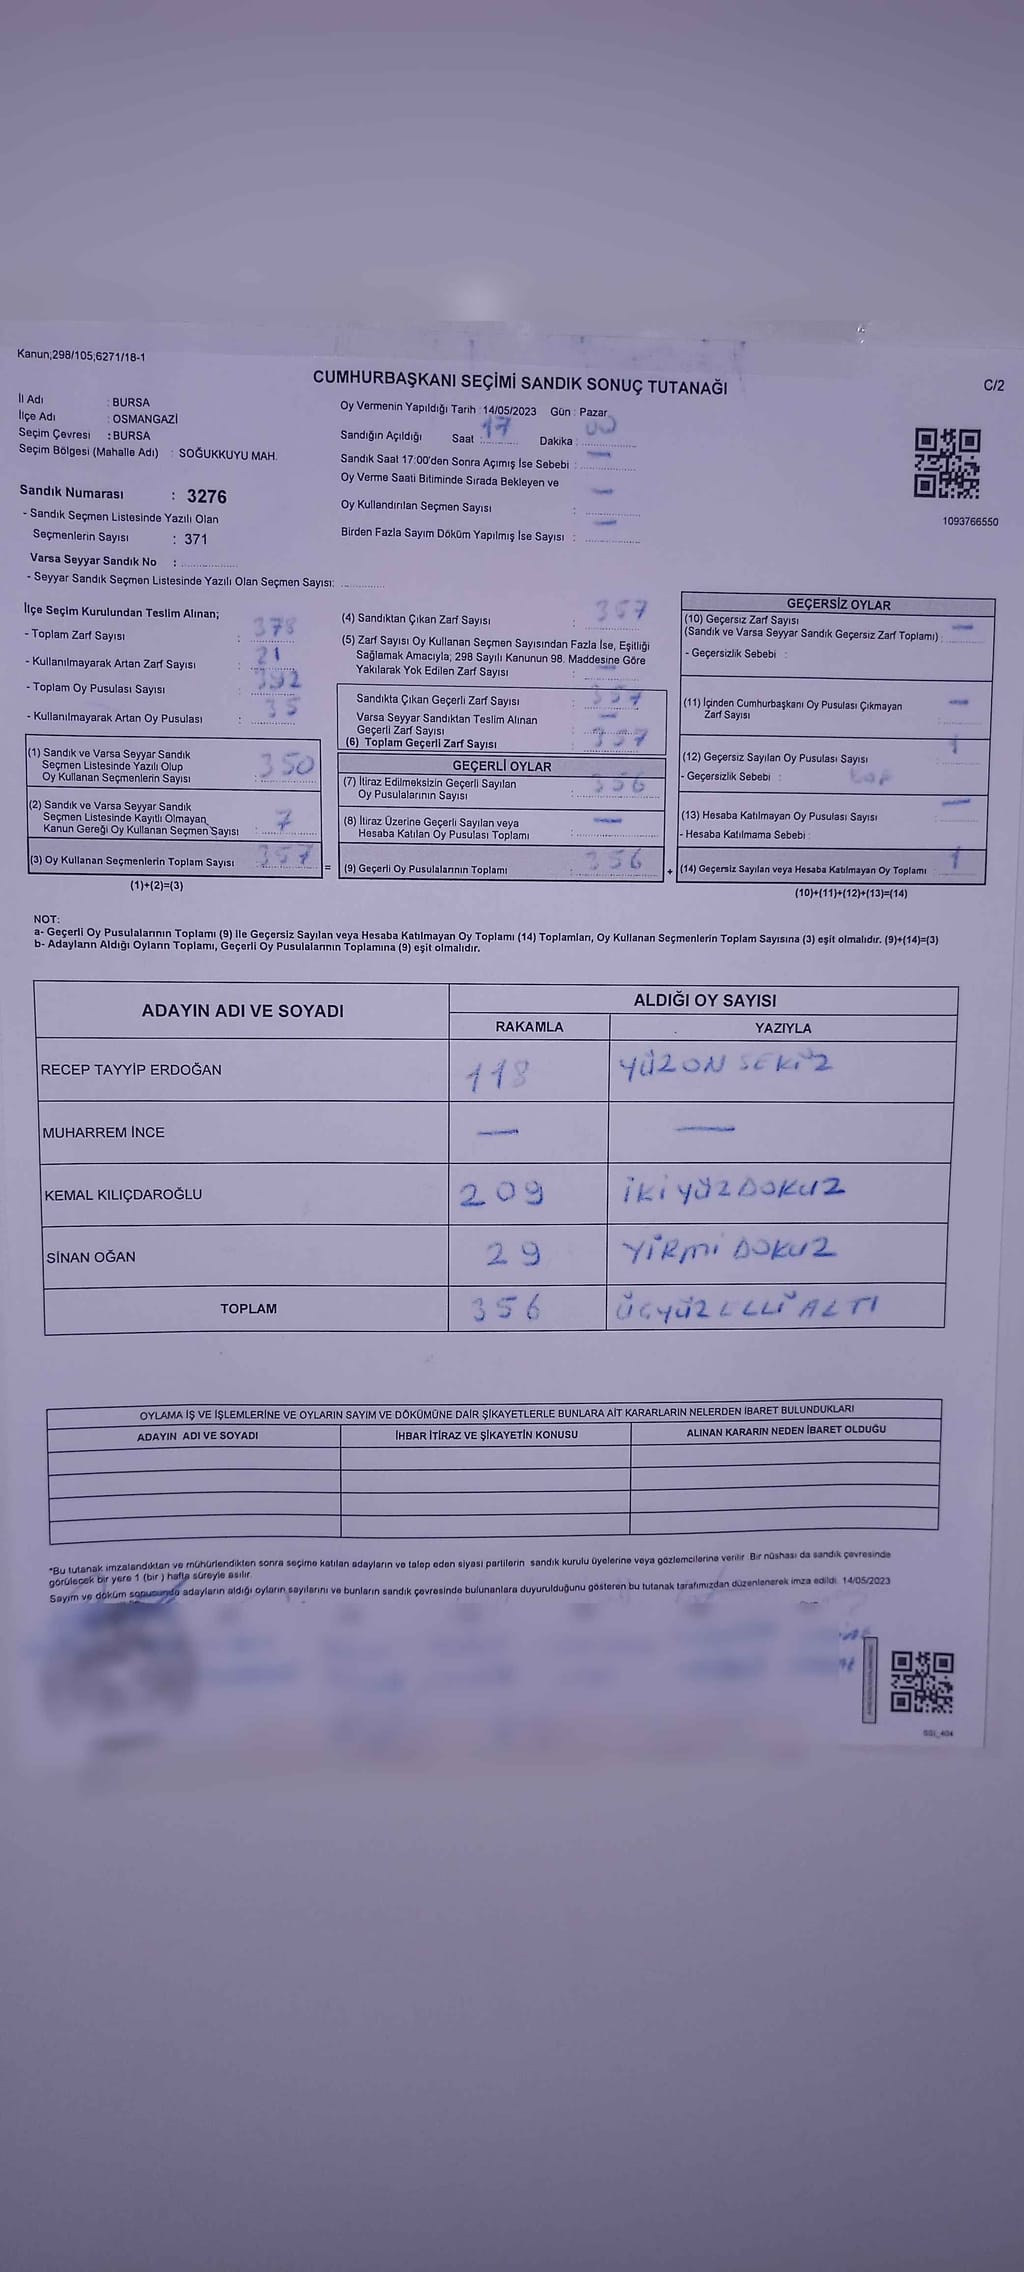 Kanun;298/105;6271/18-1
CUMHURBAŞKANI SEÇİMİ SANDIK SONUÇ TUTANAĞI
C/2
İl Adı : BURSA
İlçe Adı : OSMANGAZİ
Seçim Çevresi : BURSA
Seçim Bölgesi (Mahalle Adı) : SOĞUKKUYU MAH.
Sandık Numarası : 3276
- Sandık Seçmen Listesinde Yazılı Olan
Seçmenlerin Sayısı : 371
Varsa Seyyar Sandık No :
- Seyyar Sandık Seçmen Listesinde Yazılı Olan Seçmen Sayısı:
Oy Vermenin Yapıldığı Tarih : 14/05/2023 Gün : Pazar
Sandığın Açıldığı Saat : 17 Dakika : 00
Sandık Saat 17:00'den Sonra Açımış İse Sebebi : —
Oy Verme Saati Bitiminde Sırada Bekleyen ve
Oy Kullandırılan Seçmen Sayısı : —
Birden Fazla Sayım Döküm Yapılmış İse Sayısı : —
1093766550
İlçe Seçim Kurulundan Teslim Alınan;
- Toplam Zarf Sayısı : 378
- Kullanılmayarak Artan Zarf Sayısı : 21
- Toplam Oy Pusulası Sayısı : 392
- Kullanılmayarak Artan Oy Pusulası : 35
(1) Sandık ve Varsa Seyyar Sandık
Seçmen Listesinde Yazılı Olup
Oy Kullanan Seçmenlerin Sayısı : 350
(2) Sandık ve Varsa Seyyar Sandık
Seçmen Listesinde Kayıtlı Olmayan
Kanun Gereği Oy Kullanan Seçmen Sayısı : 7
(3) Oy Kullanan Seçmenlerin Toplam Sayısı : 357
(1)+(2)=(3)
(4) Sandıktan Çıkan Zarf Sayısı : 357
(5) Zarf Sayısı Oy Kullanan Seçmen Sayısından Fazla İse, Eşitliği
Sağlamak Amacıyla; 298 Sayılı Kanunun 98. Maddesine Göre
Yakılarak Yok Edilen Zarf Sayısı : —
Sandıkta Çıkan Geçerli Zarf Sayısı : 357
Varsa Seyyar Sandıktan Teslim Alınan
Geçerli Zarf Sayısı : —
(6) Toplam Geçerli Zarf Sayısı : 357
GEÇERLİ OYLAR
(7) İtiraz Edilmeksizin Geçerli Sayılan
Oy Pusulalarının Sayısı : 356
(8) İtiraz Üzerine Geçerli Sayılan veya
Hesaba Katılan Oy Pusulası Toplamı : —
= (9) Geçerli Oy Pusulalarının Toplamı : 356
GEÇERSİZ OYLAR
(10) Geçersiz Zarf Sayısı
(Sandık ve Varsa Seyyar Sandık Geçersiz Zarf Toplamı) : —
- Geçersizlik Sebebi :
(11) İçinden Cumhurbaşkanı Oy Pusulası Çıkmayan
Zarf Sayısı : —
(12) Geçersiz Sayılan Oy Pusulası Sayısı : 1
- Geçersizlik Sebebi :
(13) Hesaba Katılmayan Oy Pusulası Sayısı : —
- Hesaba Katılmama Sebebi :
+ (14) Geçersiz Sayılan veya Hesaba Katılmayan Oy Toplamı : 1
(10)+(11)+(12)+(13)=(14)
NOT:
a- Geçerli Oy Pusulalarının Toplamı (9) İle Geçersiz Sayılan veya Hesaba Katılmayan Oy Toplamı (14) Toplamları, Oy Kullanan Seçmenlerin Toplam Sayısına (3) eşit olmalıdır. (9)+(14)=(3)
b- Adayların Aldığı Oyların Toplamı, Geçerli Oy Pusulalarının Toplamına (9) eşit olmalıdır.
ADAYIN ADI VE SOYADI
ALDIĞI OY SAYISI
RAKAMLA YAZIYLA
RECEP TAYYİP ERDOĞAN 118 YÜZON SEKİZ
MUHARREM İNCE — —
KEMAL KILIÇDAROĞLU 209 İKİYÜZDOKUZ
SİNAN OĞAN 29 YİRMİ DOKUZ
TOPLAM 356 ÜÇYÜZELLİ ALTI
OYLAMA İŞ VE İŞLEMLERİNE VE OYLARIN SAYIM VE DÖKÜMÜNE DAİR ŞİKAYETLERLE BUNLARA AİT KARARLARIN NELERDEN İBARET BULUNDUKLARI
ADAYIN ADI VE SOYADI İHBAR İTİRAZ VE ŞİKAYETİN KONUSU ALINAN KARARIN NEDEN İBARET OLDUĞU
*Bu tutanak imzalandıktan ve mühürlendikten sonra seçime katılan adayların ve talep eden siyasi partilerin sandık kurulu üyelerine veya gözlemcilerine verilir. Bir nüshası da sandık çevresinde
görülecek bir yere 1 (bir ) hafta süreyle asılır.
Sayım ve döküm sonucunda adayların aldığı oyların sayılarını ve bunların sandık çevresinde bulunanlara duyurulduğunu gösteren bu tutanak tarafımızdan düzenlenerek imza edildi. 14/05/2023